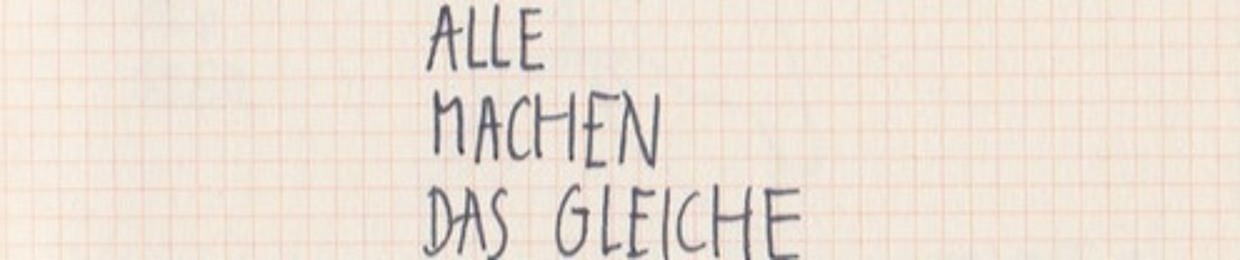 ALLE
MACHEN
DAS GLEICHE